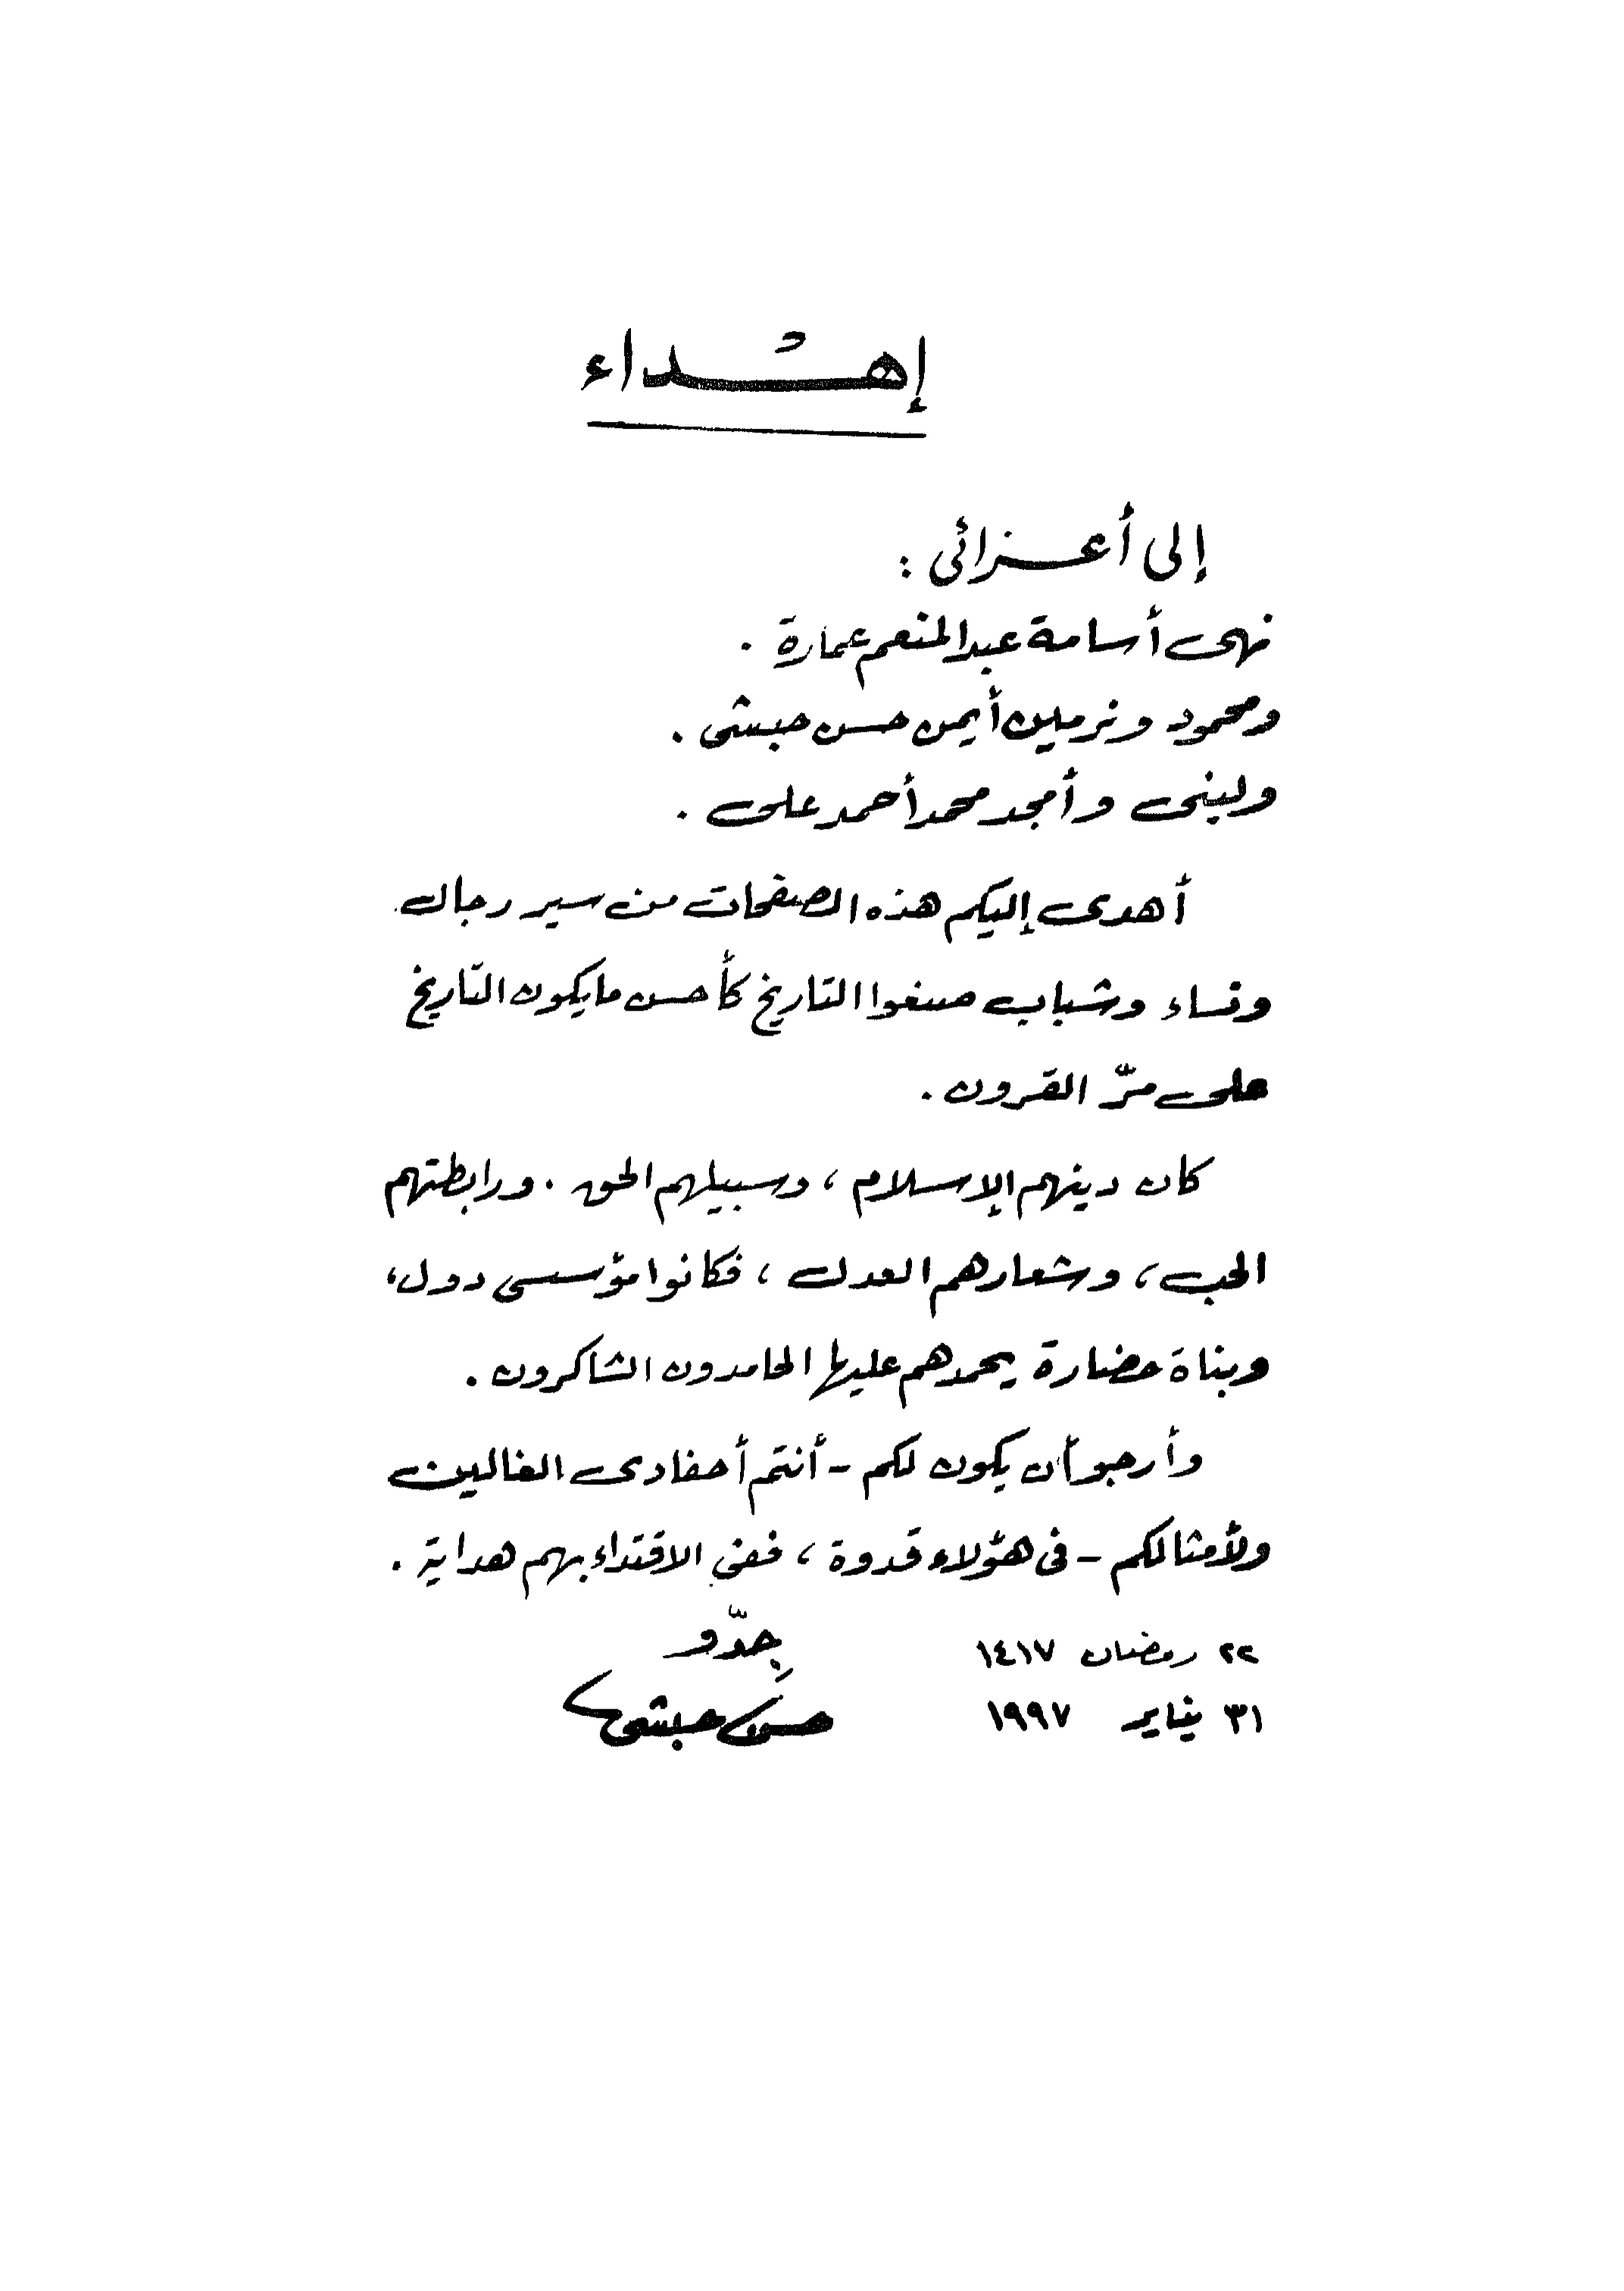 إهْداء
إلى أعزائى :
نهى أسامة عبد المنعم عمارة .
ومحمود ونرمين أيمن حسن حبشى .
ولبنى وأمجد محمد أحمد على .
أهدى إليكم هذه الصفحات من سير رجال
ونساء وشباب صنعوا التاريخ كأحسن ما يكون التّاريخ
على مرّ القرون .
كان دينهم الإسلام ، وسبيلهم الحق . ورابطتهم
الحب ، وشعارهم العدل ، فكانوا مؤسسى دول ،
وبناة حضارة يحمدهم عليها الحامدون الشاكرون .
وأرجو أن يكون لكم - أنتم أحفادى الغالين
ولأمثالكم - فى هؤلاء قدوة ، ففى الاقتداء بهم هداية .
٢٢ رمضان ١٤١٧ جِدّو
٣١ يناير ١٩٩٧ حسن حبشى